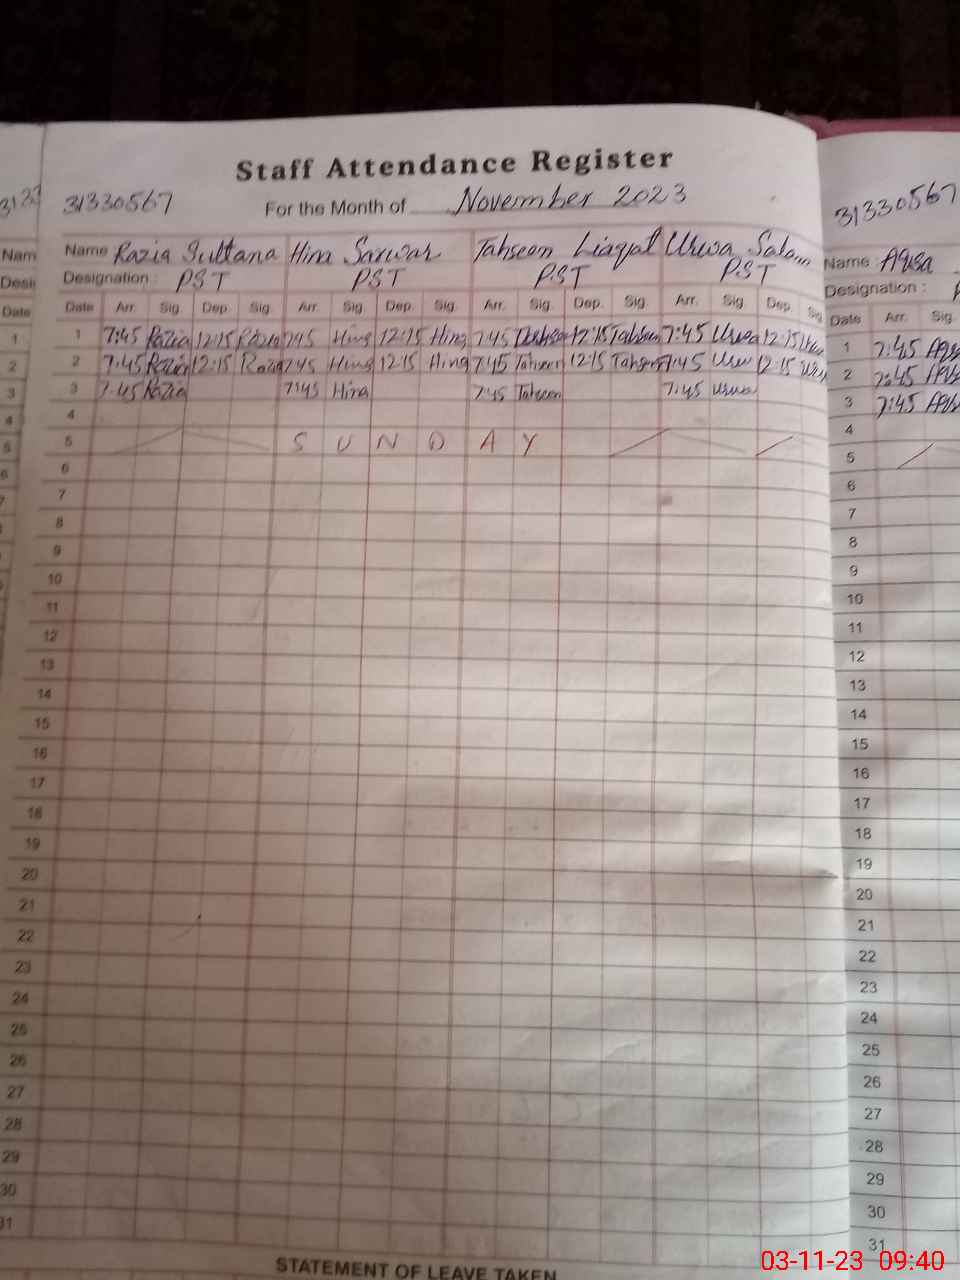 Staff Attendance Register
3133
31330567
For the Month of November 2023
31330567
Nam
Name Razia Sultana Hina Sarwar Tahseen Liaqat Urwa Salam
Name : Aqsa
Desi
Designation : PST PST PST PST
Designation :
Date
Date Arr. Sig. Dep. Sig. Arr. Sig. Dep. Sig. Arr. Sig. Dep. Sig. Arr. Sig. Dep. Sig.
Date Arr. Sig.
1 1 7:45 Razia 12:15 Razia 7:45 Hina 12:15 Hina 7:45 Tahseen 12:15 Tahseen 7:45 Urwa 12:15 Urwa 1 7:45 Aqsa
2 2 7:45 Razia 12:15 Razia 7:45 Hina 12:15 Hina 7:45 Tahseen 12:15 Tahseen 7:45 Urwa 12:15 Urwa 2 7:45 Aqsa
3 3 7:45 Razia 7:45 Hina 7:45 Tahseen 7:45 Urwa 3 7:45 Aqsa
4 4 4
5 5 S U N D A Y 5
6 6 6
7 7 7
8 8
9 9
10 10
11 11
12 12
13 13
14 14
15 15
16 16
17 17
18 18
19 19
20 20
21 21
22 22
23 23
24 24
25 25
26 26
27 27
28 28
29 29
30 30
31 31
STATEMENT OF LEAVE TAKEN
03-11-23 09:40